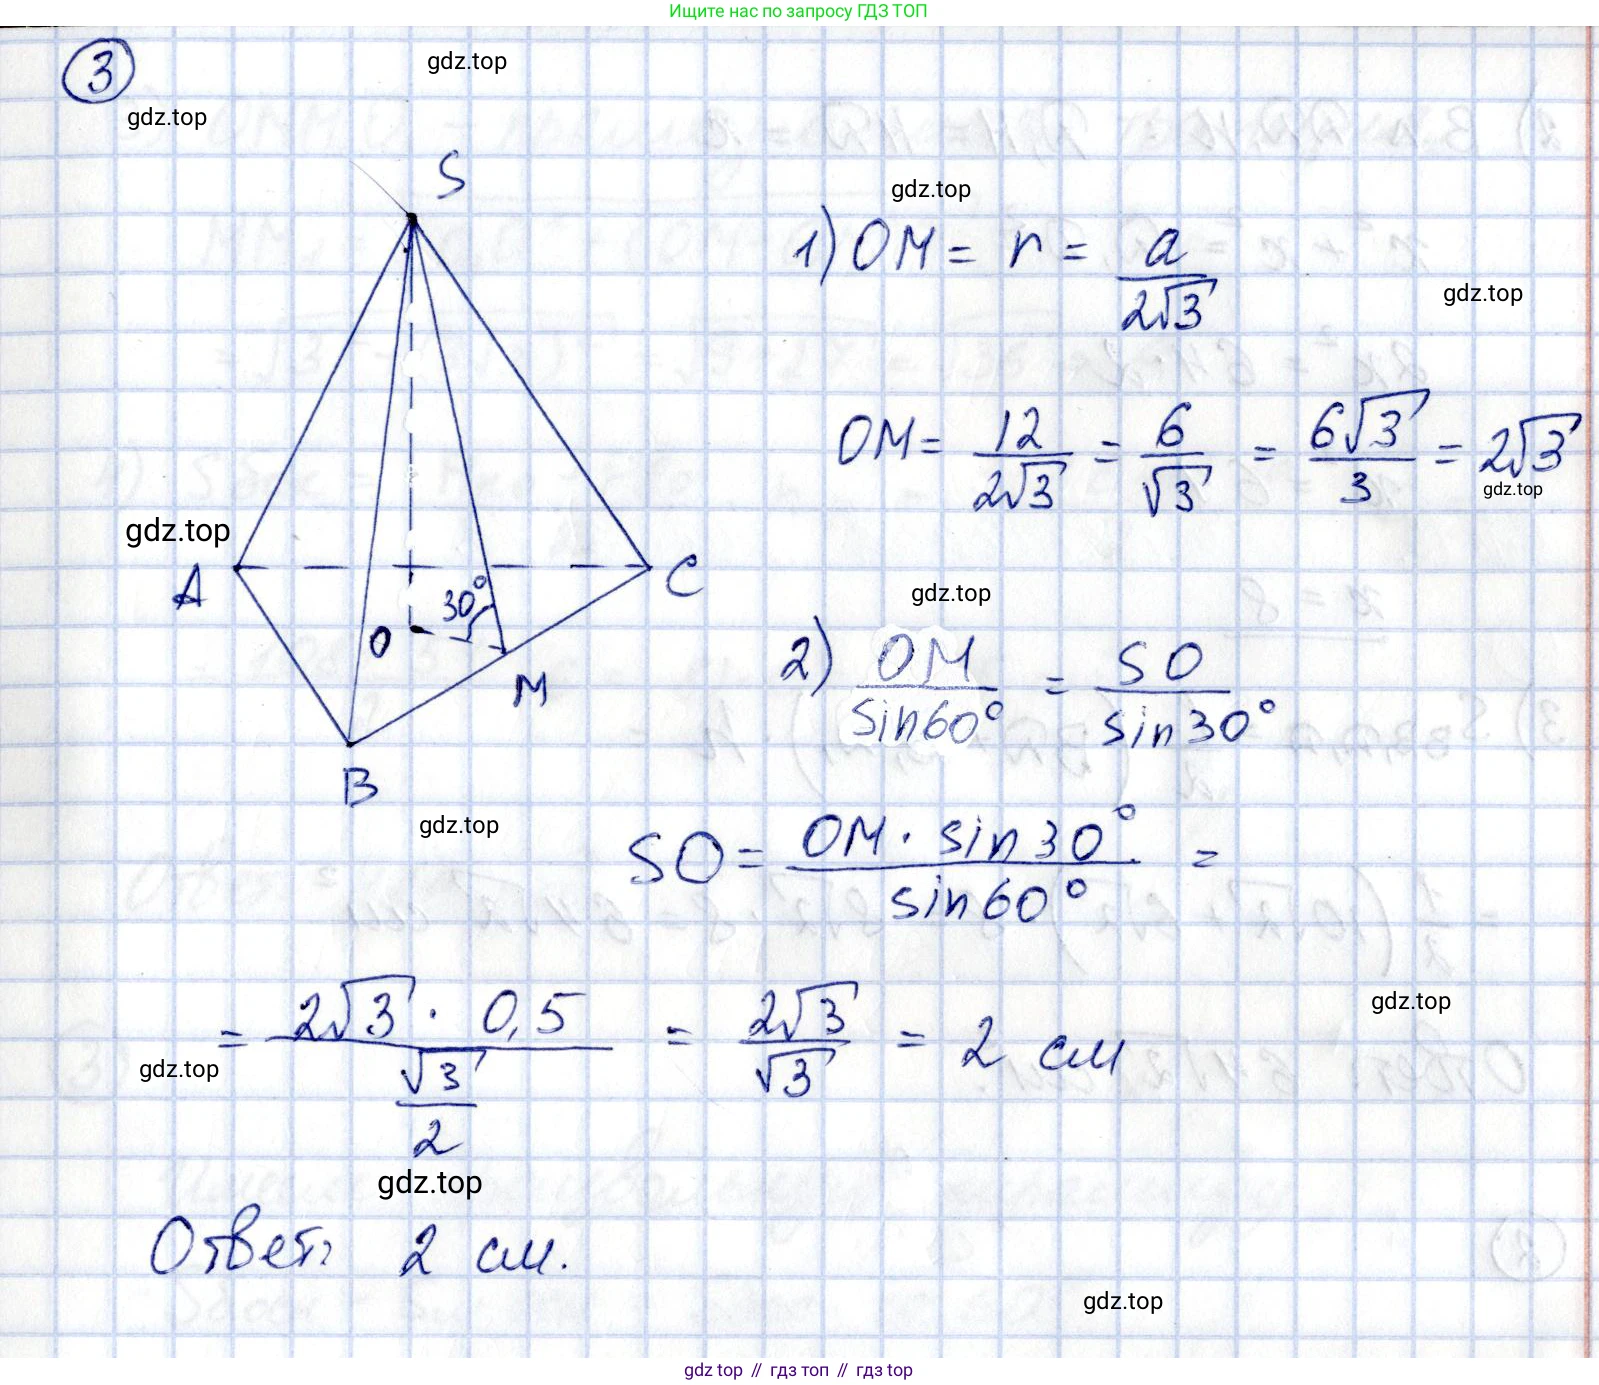 Ищите нас по запросу ГДЗ ТОП
3
gdz.top
gdz.top
S
gdz.top
1) OM = r = a/(2√3)
gdz.top
OM = 12/(2√3) = 6/√3 = 6√3/3 = 2√3
gdz.top
gdz.top
A
C
30°
O
M
B
gdz.top
2) OM/sin60° = SO/sin30°
gdz.top
SO = OM · sin30°/sin60° =
= 2√3 · 0,5/(√3/2) = 2√3/√3 = 2 см
gdz.top
gdz.top
gdz.top
Ответ: 2 см.
gdz.top
gdz top // гдз топ // gdz top